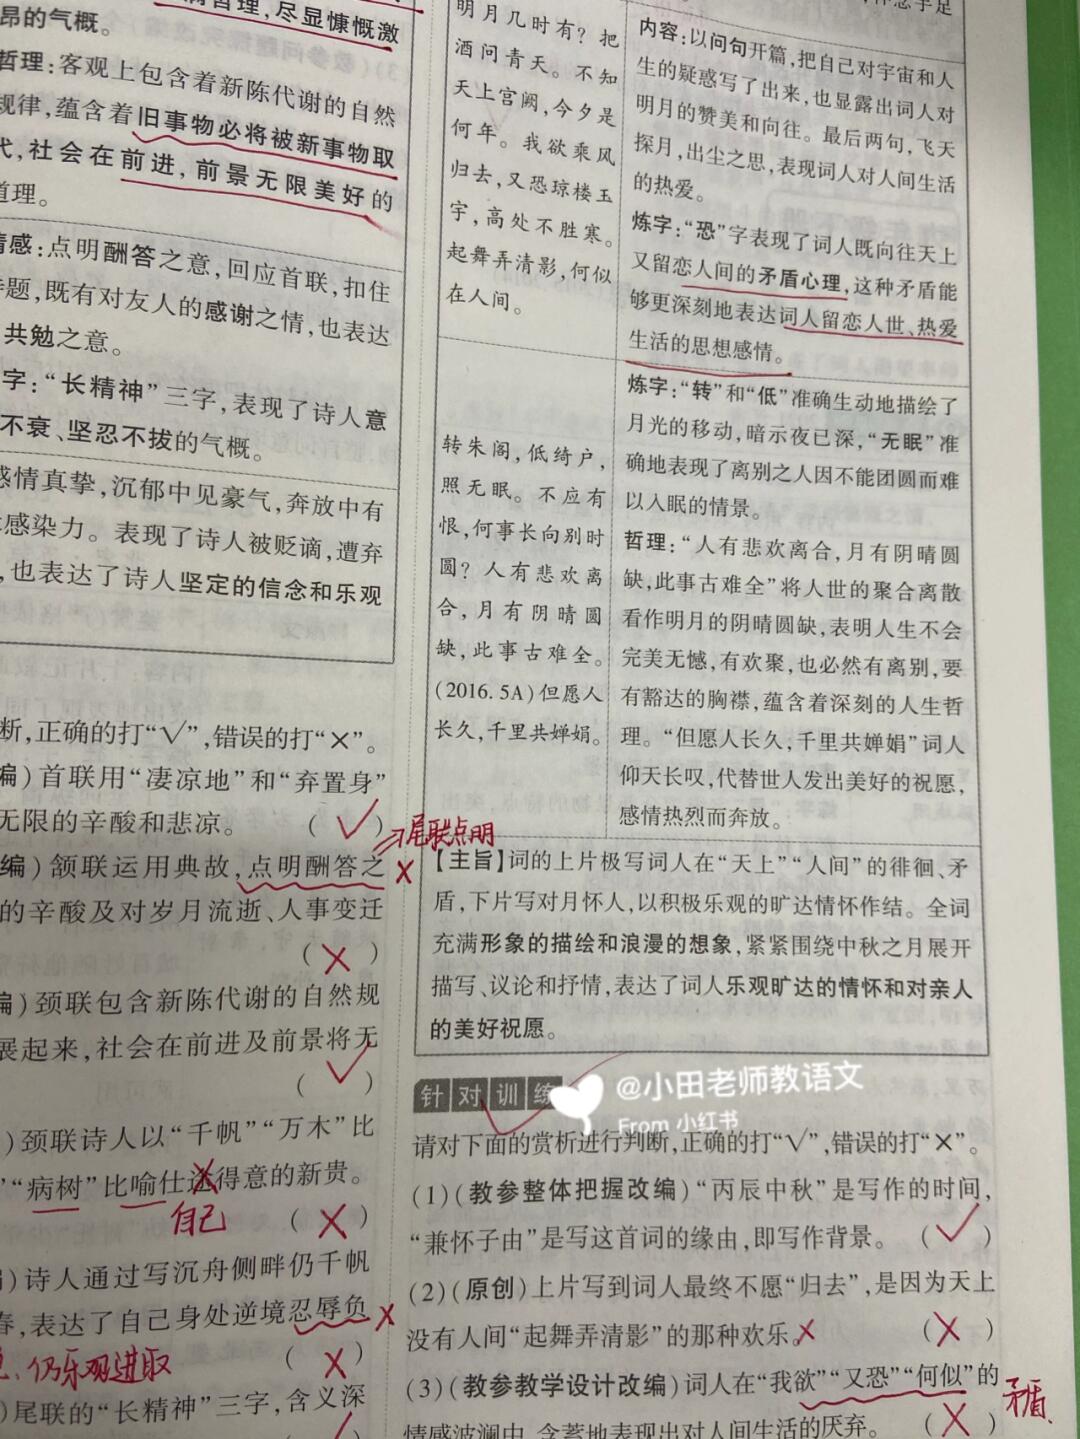 哲理,尽显慷慨激
昂的气概。
哲理:客观上包含着新陈代谢的自然
规律,蕴含着旧事物必将被新事物取
代,社会在前进,前景无限美好的
道理。
情感:点明酬答之意,回应首联,扣住
诗题,既有对友人的感谢之情,也表达
共勉之意。
字:“长精神”三字,表现了诗人意
不衰、坚忍不拔的气概。
感情真挚,沉郁中见豪气,奔放中有
感染力。表现了诗人被贬谪,遭弃
,也表达了诗人坚定的信念和乐观
断,正确的打“√”,错误的打“×”。
编)首联用“凄凉地”和“弃置身”
无限的辛酸和悲凉。 (√)
→尾联点明
编)颔联运用典故,点明酬答之×
的辛酸及对岁月流逝、人事变迁
(×)
编)颈联包含新陈代谢的自然规
展起来,社会在前进及前景将无
(√)
)颈联诗人以“千帆”“万木”比
”“病树”比喻仕达得意的新贵。
自己 (×)
)诗人通过写沉舟侧畔仍千帆
春,表达了自己身处逆境忍辱负×
、仍乐观进取 (×)
)尾联的“长精神”三字,含义深
明月几时有?把
酒问青天。不知
天上宫阙,今夕是
何年。我欲乘风
归去,又恐琼楼玉
宇,高处不胜寒。
起舞弄清影,何似
在人间。
内容:以问句开篇,把自己对宇宙和人
生的疑惑写了出来,也显露出词人对
明月的赞美和向往。最后两句,飞天
探月,出尘之思,表现词人对人间生活
的热爱。
炼字:“恐”字表现了词人既向往天上
又留恋人间的矛盾心理,这种矛盾能
够更深刻地表达词人留恋人世、热爱
生活的思想感情。
转朱阁,低绮户,
照无眠。不应有
恨,何事长向别时
圆?人有悲欢离
合,月有阴晴圆
缺,此事古难全。
(2016.5A)但愿人
长久,千里共婵娟。
炼字:“转”和“低”准确生动地描绘了
月光的移动,暗示夜已深,“无眠”准
确地表现了离别之人因不能团圆而难
以入眠的情景。
哲理:“人有悲欢离合,月有阴晴圆
缺,此事古难全”将人世的聚合离散
看作明月的阴晴圆缺,表明人生不会
完美无憾,有欢聚,也必然有离别,要
有豁达的胸襟,蕴含着深刻的人生哲
理。“但愿人长久,千里共婵娟”词人
仰天长叹,代替世人发出美好的祝愿,
感情热烈而奔放。
【主旨】词的上片极写词人在“天上”“人间”的徘徊、矛
盾,下片写对月怀人,以积极乐观的旷达情怀作结。全词
充满形象的描绘和浪漫的想象,紧紧围绕中秋之月展开
描写、议论和抒情,表达了词人乐观旷达的情怀和对亲人
的美好祝愿。
针对训练
@小田老师教语文
From 小红书
请对下面的赏析进行判断,正确的打“√”,错误的打“×”。
(1)(教参整体把握改编)“丙辰中秋”是写作的时间,
“兼怀子由”是写这首词的缘由,即写作背景。 (√)
(2)(原创)上片写到词人最终不愿“归去”,是因为天上
没有人间“起舞弄清影”的那种欢乐。× (×)
(3)(教参教学设计改编)词人在“我欲”“又恐”“何似”的
矛盾、
情感波澜中,含蓄地表现出对人间生活的厌弃。 (×)